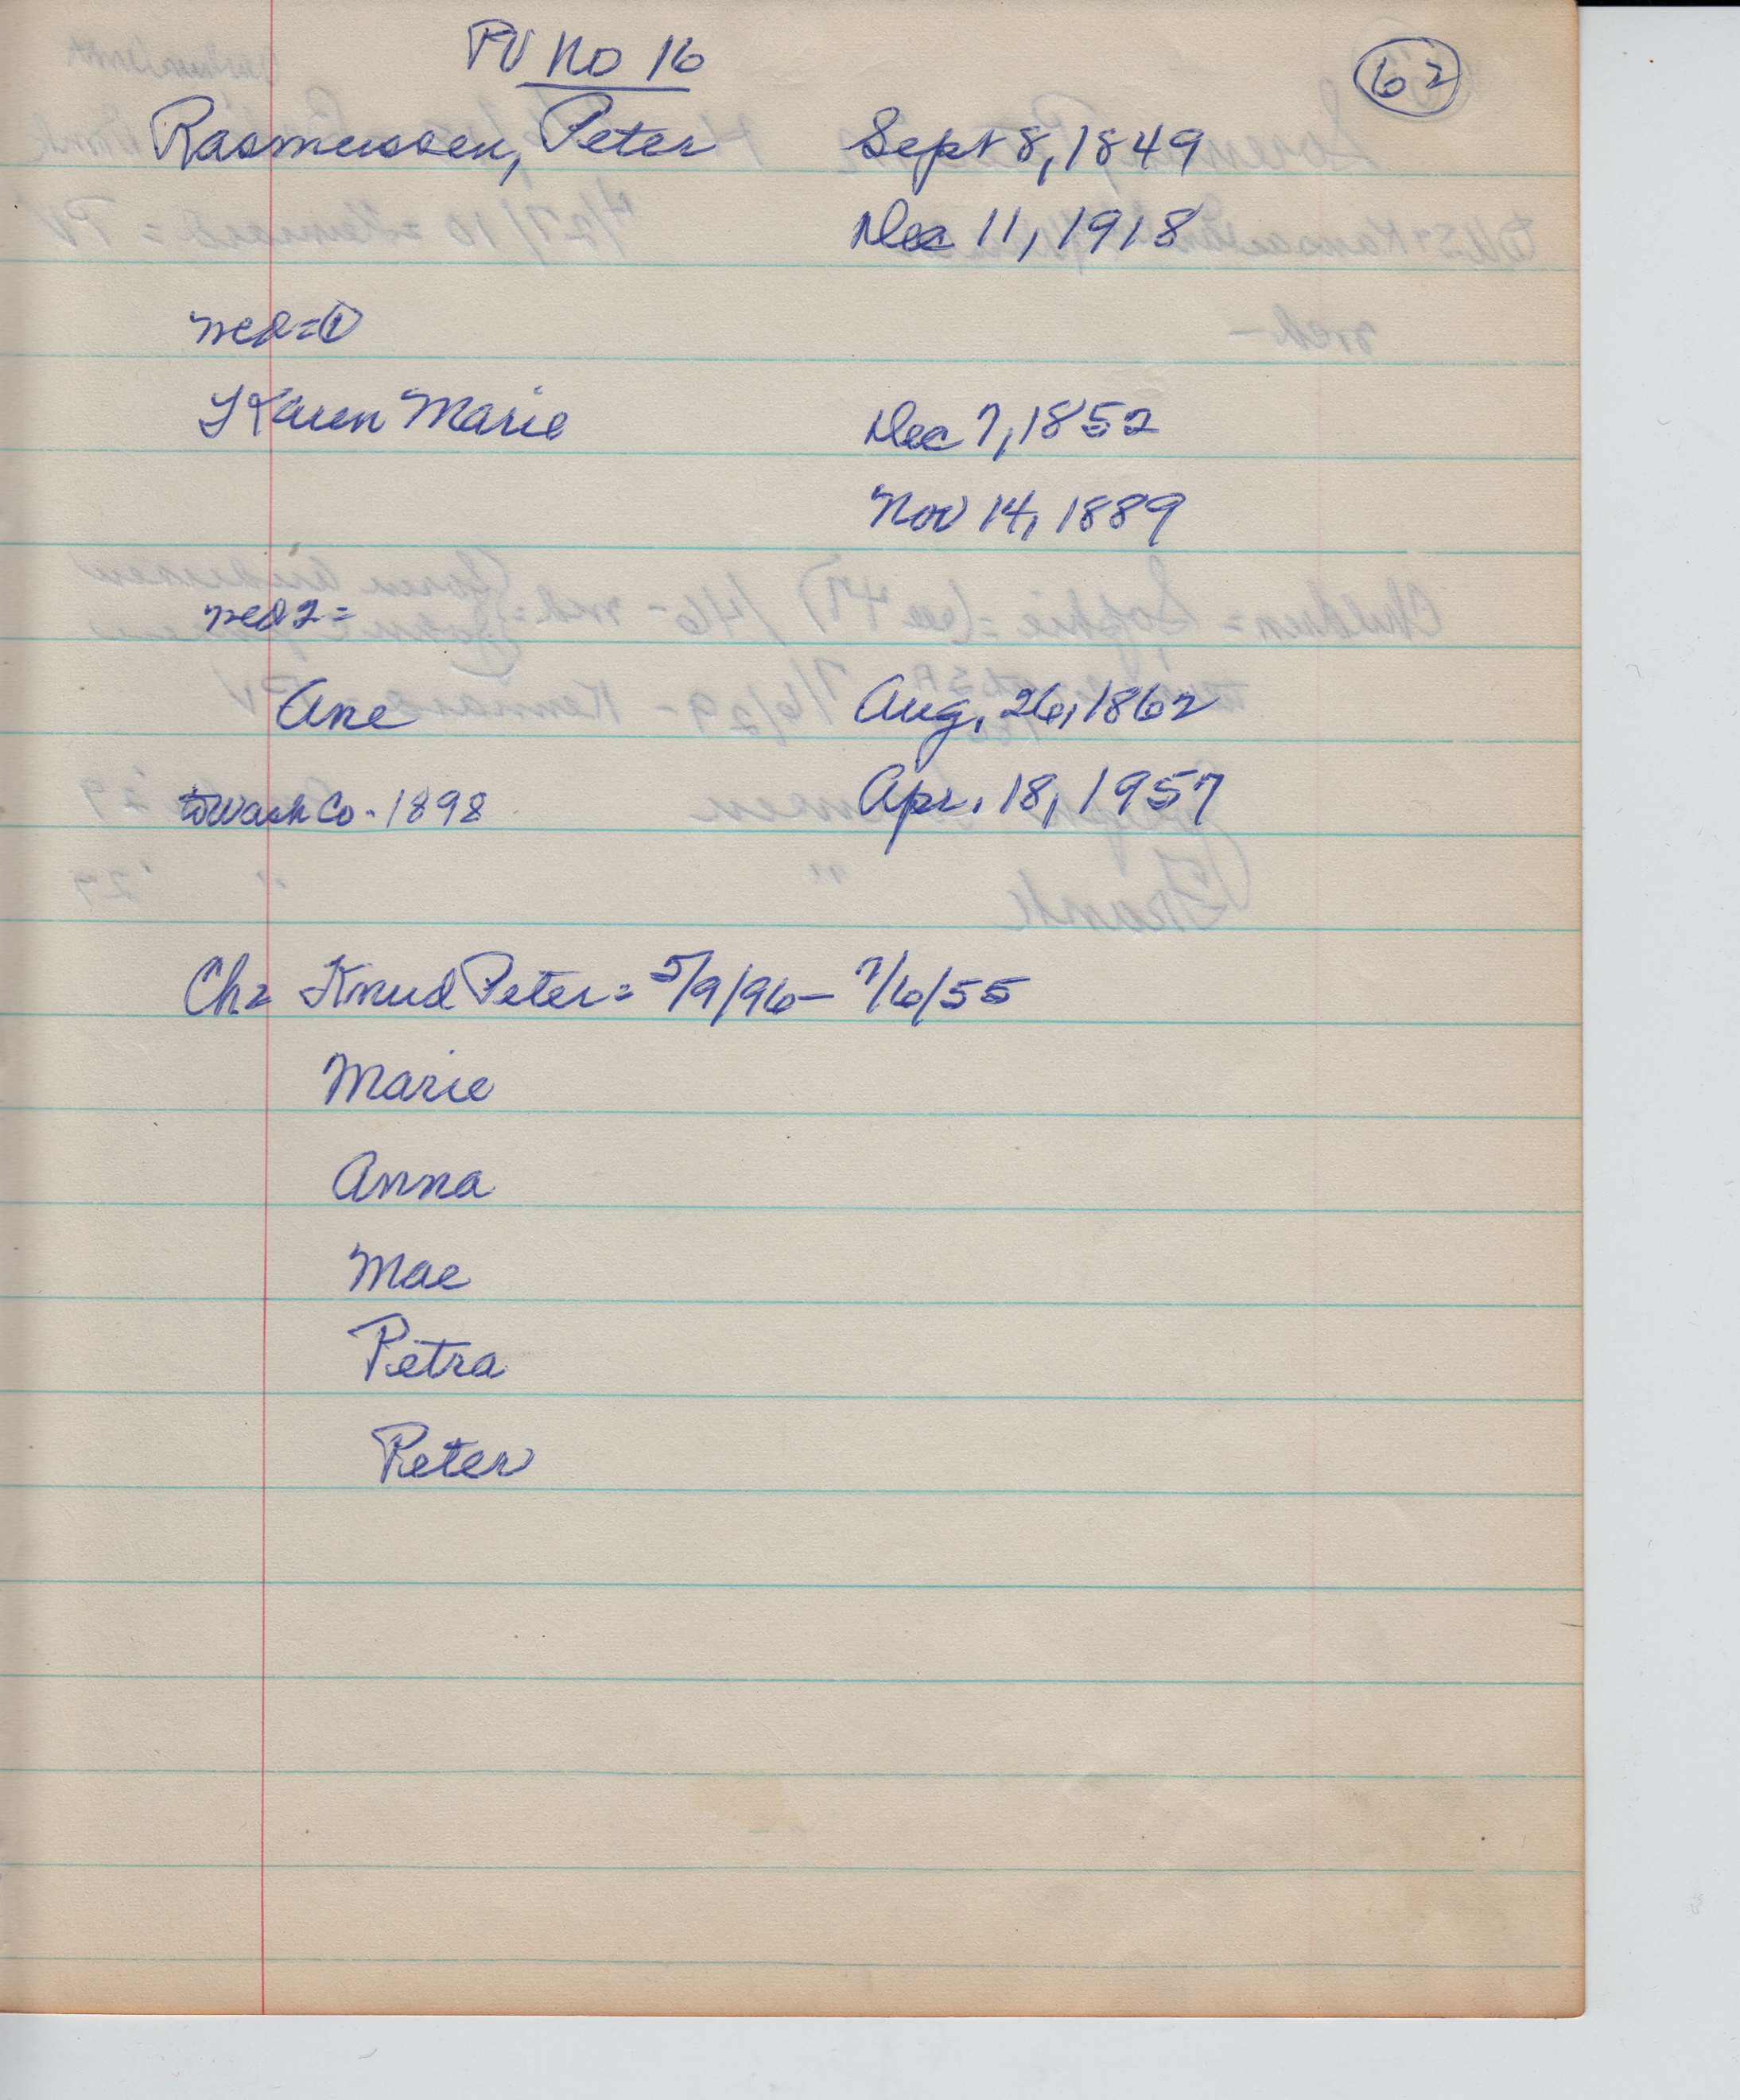 PV No 16
62
Rasmussen, Peter Sept 8, 1849
Dec 11, 1918
med = ①
Karen Marie Dec 7, 1852
Nov 14, 1889
med 2 =
Ane Aug. 26, 1862
to Wash Co - 1898 Apr. 18, 1957
Ch = Knud Peter = 5/9/96 - 7/6/55
Marie
Anna
Mae
Petra
Peter